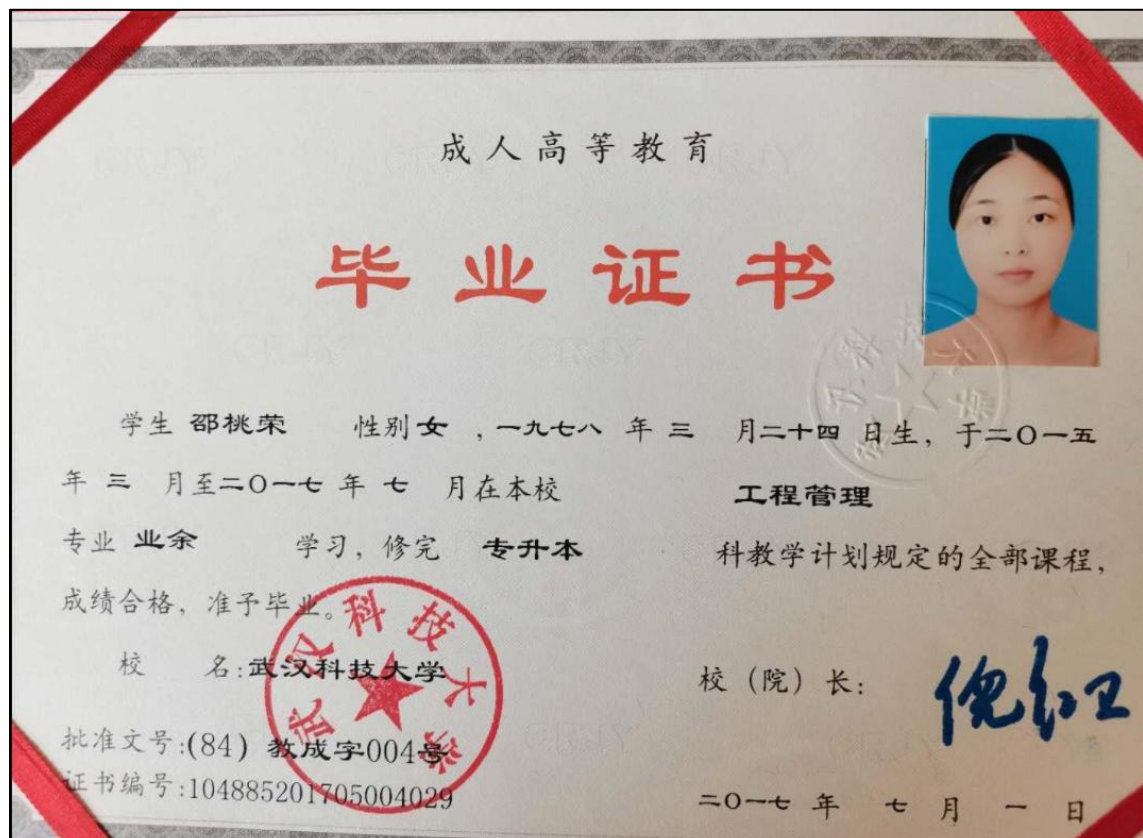 成人高等教育
毕业证书
学生 邵桃荣 性别 女 ,一九七八 年 三 月二十四 日生, 于二〇一五
年 三 月至二〇一七 年 七 月在本校 工程管理
专业 业余 学习, 修完 专升本 科教学计划规定的全部课程,
成绩合格, 准予毕业。
武汉科技大学
校 名:武汉科技大学
校（院）长: 倪红卫
批准文号:(84) 教成字004号
证书编号:104885201705004029
二〇一七 年 七 月 一 日